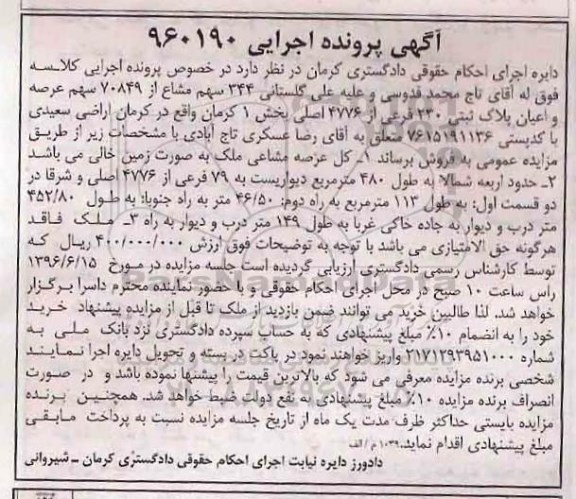 آگهی پرونده اجرایی ۹۶۰۱۹۰
دایره اجرای احکام حقوقی دادگستری کرمان در نظر دارد در خصوص پرونده اجرایی کلاسه
فوق له آقای تاج محمد قدوسی و علیه علی گلستانی ۳۴۴ سهم مشاع از ۷۰۸۴۹ سهم عرصه
و اعیان پلاک ثبتی ۲۳۰ فرعی از ۴۷۷۶ اصلی بخش ۱ کرمان واقع در کرمان اراضی سعیدی
با کدپستی ۷۶۱۵۱۹۱۱۳۶ متعلق به آقای رضا عسکری تاج آبادی با مشخصات زیر از طریق
مزایده عمومی به فروش برساند ۱ـ کل عرصه مشاعی ملک به صورت زمین خالی می باشد
۲ـ حدود اربعه شمالا به طول ۴۸۰ مترمربع دیواریست به ۷۹ فرعی از ۴۷۷۶ اصلی و شرقا در
دو قسمت اول: به طول ۱۱۳ مترمربع به راه دوم: ۴۶/۵۰ متر به راه جنوبا: به طول ۴۵۲/۸۰
متر درب و دیوار به جاده خاکی غربا به طول ۱۴۹ متر درب و دیوار به راه ۳ـ ملک فاقد
هرگونه حق الامتیازی می باشد با توجه به توضیحات فوق ارزش ۴۰۰/۰۰۰/۰۰۰ ریال که
توسط کارشناس رسمی دادگستری ارزیابی گردیده است جلسه مزایده در مورخ ۱۳۹۶/۶/۱۵
راس ساعت ۱۰ صبح در محل اجرای احکام حقوقی و با حضور نماینده محترم داسرا برگزار
خواهد شد. لذا طالبین خرید می توانند ضمن بازدید از ملک تا قبل از مزایده پیشنهاد خرید
خود را به انضمام ۱۰٪ مبلغ پیشنهادی که به حساب سپرده دادگستری نزد بانک ملی به
شماره ۲۱۷۱۲۹۳۹۵۱۰۰۰ واریز خواهند نمود در پاکت در بسته و تحویل دایره اجرا نمایند
شخصی برنده مزایده معرفی می شود که بالاترین قیمت را پیشنها نموده باشد و در صورت
انصراف برنده مزایده ۱۰٪ مبلغ پیشنهادی به نفع دولت ضبط خواهد شد. همچنین برنده
مزایده بایستی حداکثر ظرف مدت یک ماه از تاریخ جلسه مزایده نسبت به پرداخت مابقی
مبلغ پیشنهادی اقدام نماید. ۱۰۳۹/م الف
دادورز دایره نیابت اجرای احکام حقوقی دادگستری کرمان ـ شیروانی